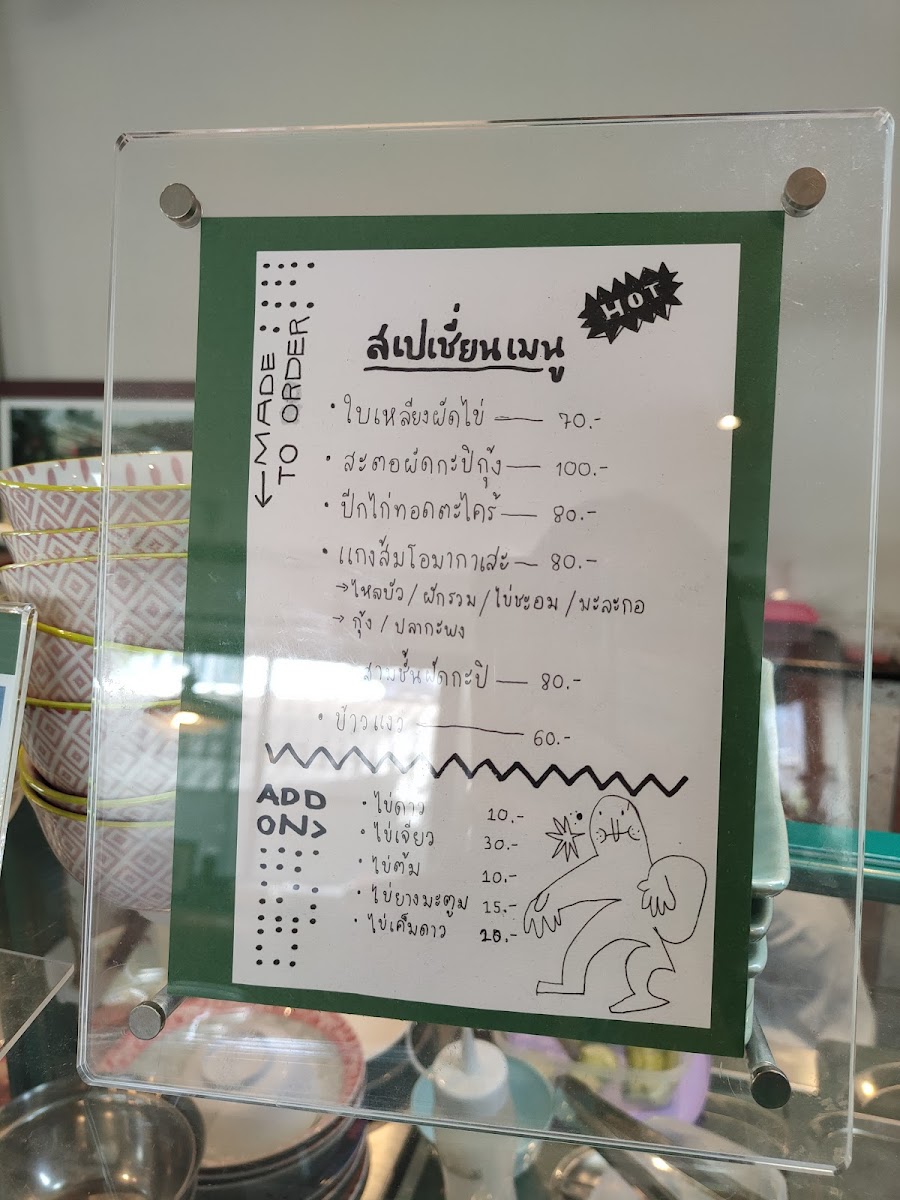 HOT
←MADE
TO ORDER
สเปเชี่ยนเมนู
• ใบเหลียงผัดไข่ — 70.-
• สะตอผัดกะปิกุ้ง — 100.-
• ปีกไก่ทอดตะไคร้ — 80.-
• แกงส้มโอมากาเสะ — 80.-
→ ไหลบัว / ผักรวม / ไข่ชะอม / มะละกอ
→ กุ้ง / ปลากะพง
สามชั้นผัดกะปิ — 80.-
• ข้าวแงว — 60.-
ADD
ON>
• ไข่ดาว 10.-
• ไข่เจียว 30.-
• ไข่ต้ม 10.-
• ไข่ยางมะตูม 15.-
• ไข่เค็มดาว